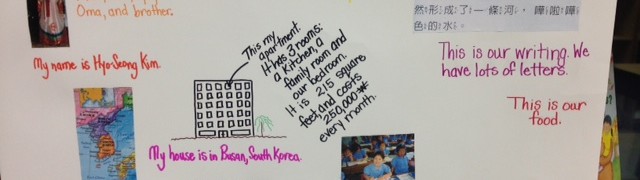 Oma, and brother.
My name is HyoSeong Kim.
This my
apartment.
It has 3 rooms:
a kitchen, a
family room and
our bedroom.
It is 215 square
feet and costs
250,000 ₩
every month.
My house is in Busan, South Korea.
然形成了一條河，嘩啦嘩
色的水。
This is our writing. We
have lots of letters.
This is our
food.